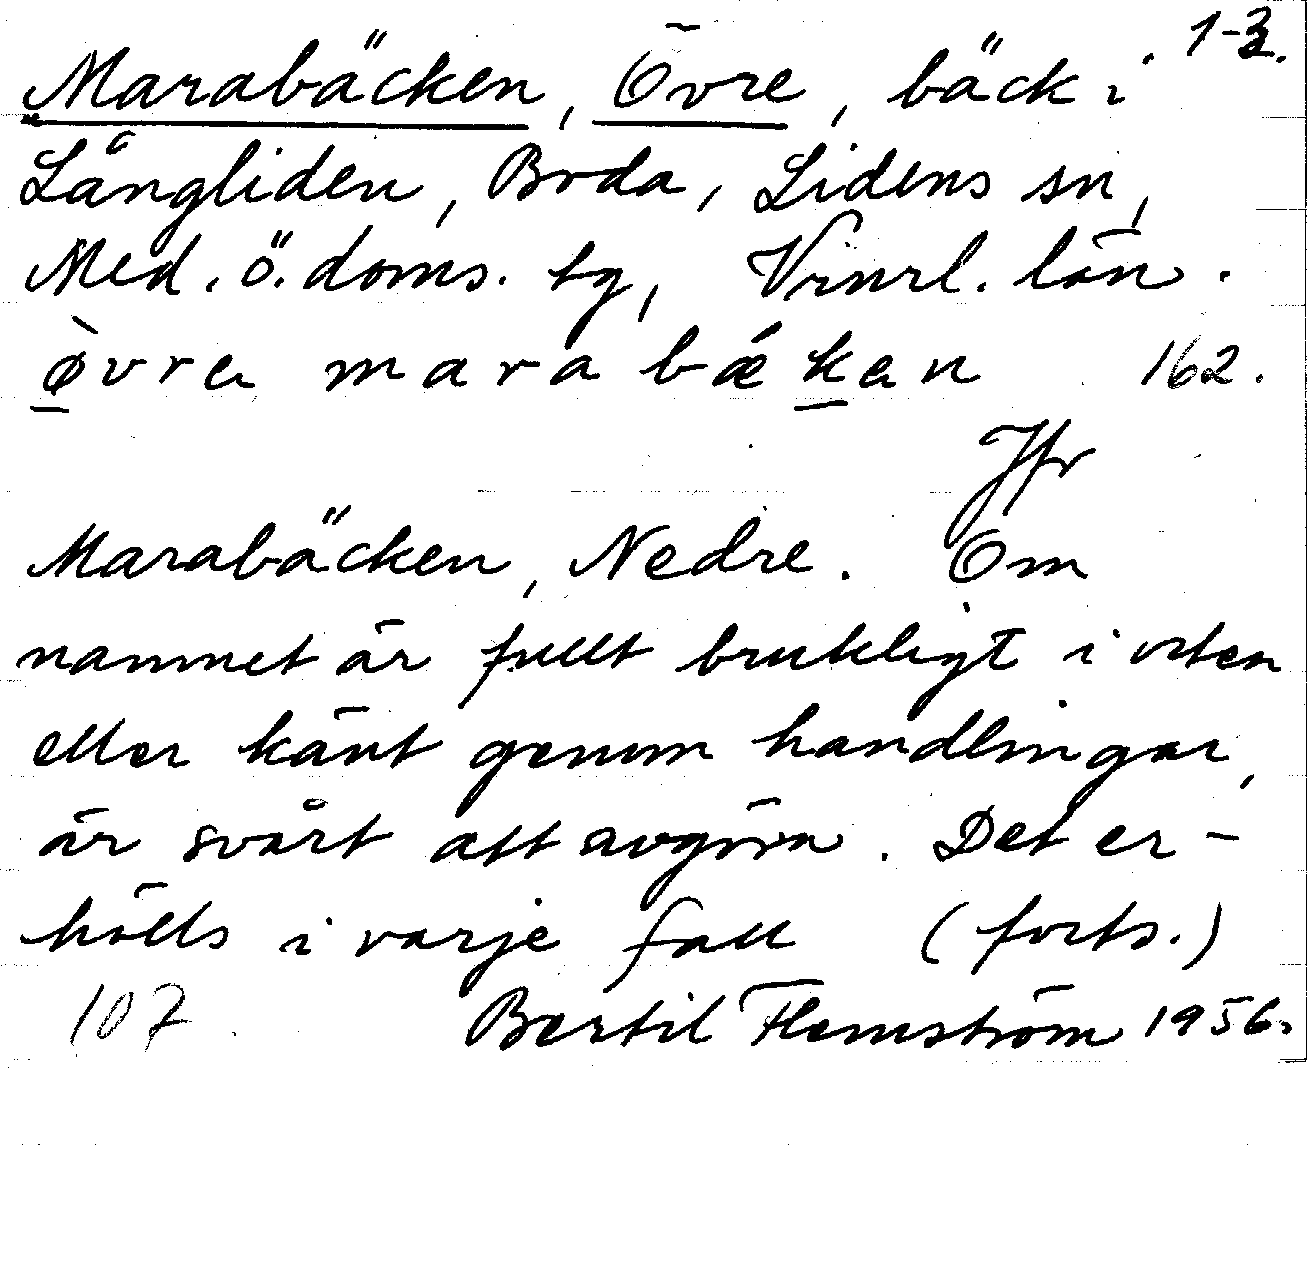 1-3.
Marabäcken, Övre, bäck i
Långliden, Boda, Lidens sn,
Med. ö. doms. tg, Vrnrl. län.
ø̀vra marabǽken 162.
Jfr
Marabäcken, Nedre. Om
namnet är fullt brukligt i orten
eller känt genom handlingar,
är svårt att avgöra. Det er-
hölls i varje fall (forts.)
107 Bertil Flemström 1956.